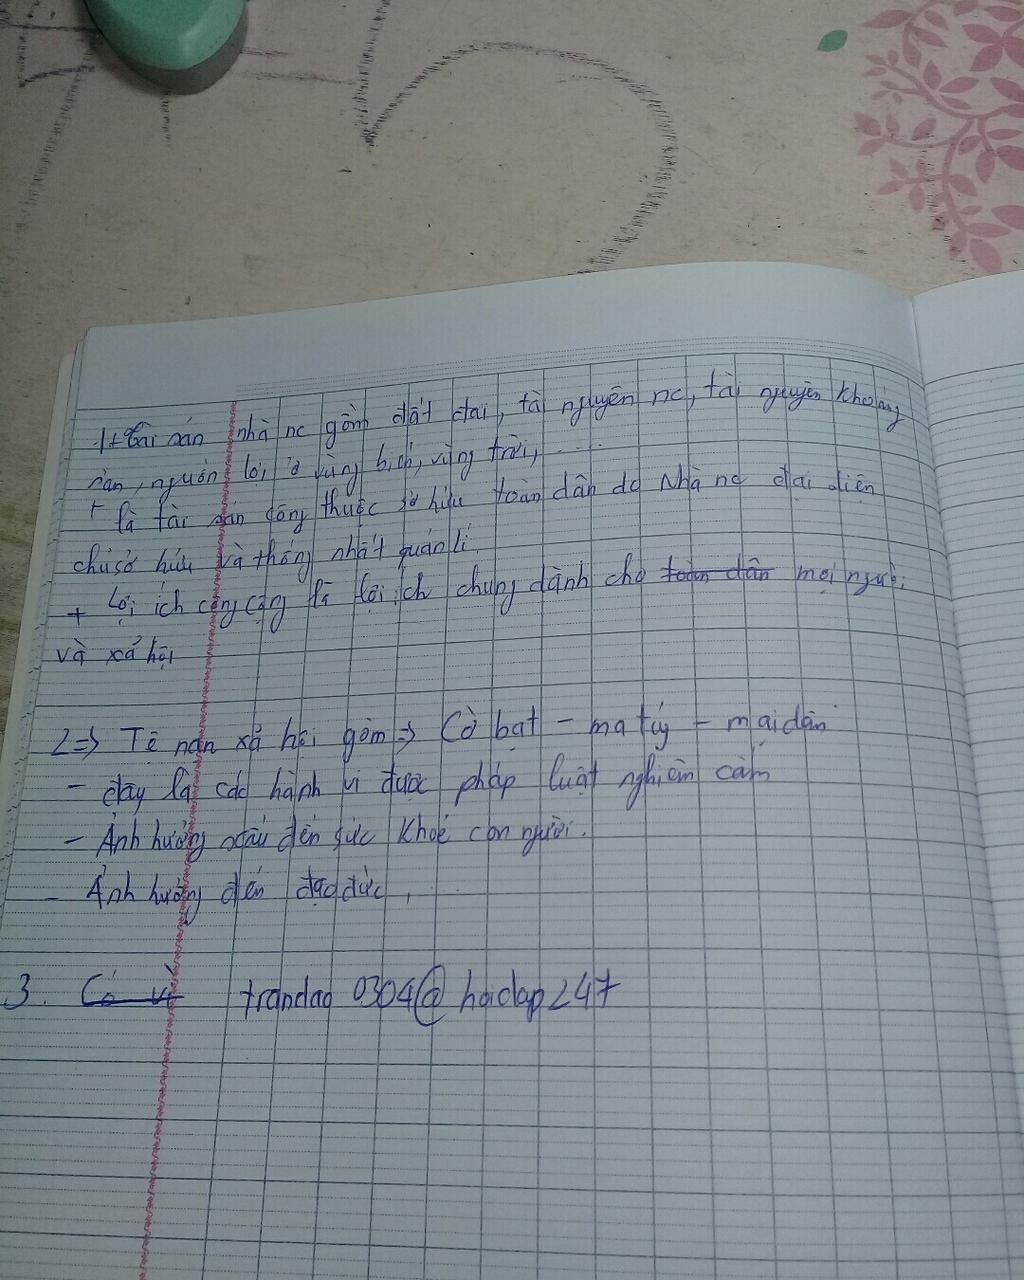 1+ Tài sản nhà nc gồm đất đai, tài nguyên nc, tài nguyên khoáng
sản, nguồn lợi ở vùng biển, vùng trời, ....
+ là tài sản công thuộc sở hữu toàn dân do Nhà nc đại diện
chủ sở hữu và thống nhất quản lí.
+ Lợi ích công cộng là lợi ích chung dành cho toàn dân mọi người
và xã hội
2=> Tệ nạn xã hội gồm => Cờ bạt - ma túy - mại dân
- đây là các hành vi được pháp luật nghiêm cấm
- Ảnh hưởng xấu đến sức khoẻ con người.
- Ảnh hưởng đến đạo đức,
3. Có vì trandao0304@hoidap247